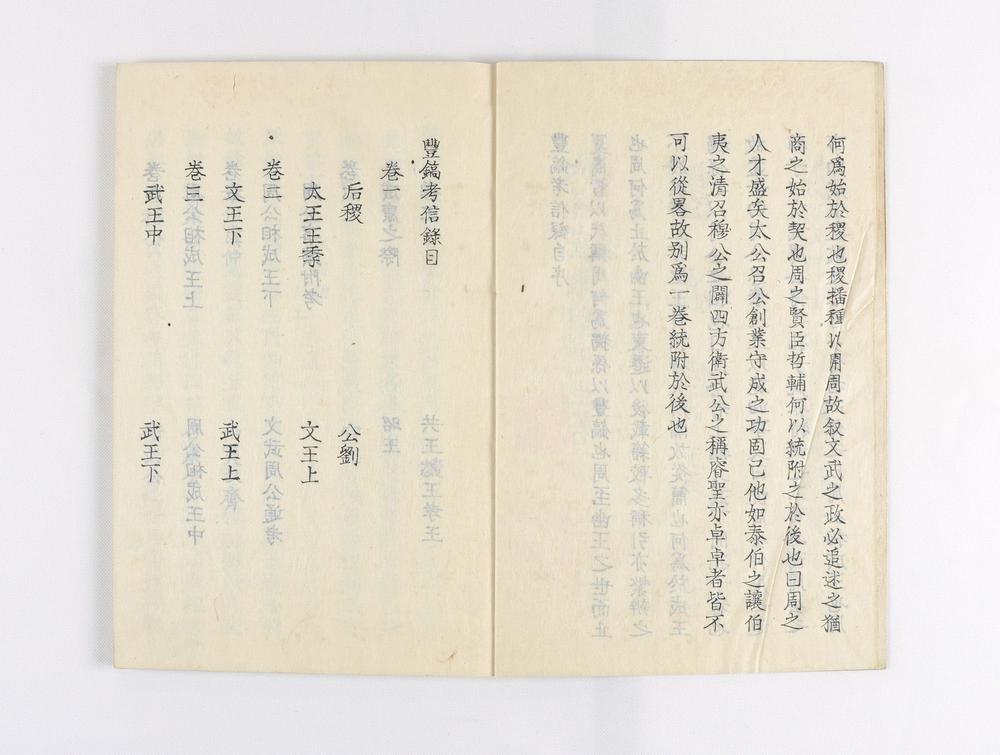 何爲始於稷也稷播種以開周故叙文武之政必追述之猶
商之始於契也周之賢臣哲輔何以統附之於後也曰周之
人才盛矣太公召公創業守成之功固已他如泰伯之讓伯
夷之清召穆公之闢四方衛武公之稱睿聖亦卓卓者皆不
可以從畧故别爲一卷統附於後也
豐鎬考信錄目
卷一
后稷 公劉
太王王季 文王上
卷二
文王下 武王上
卷三
武王中 武王下